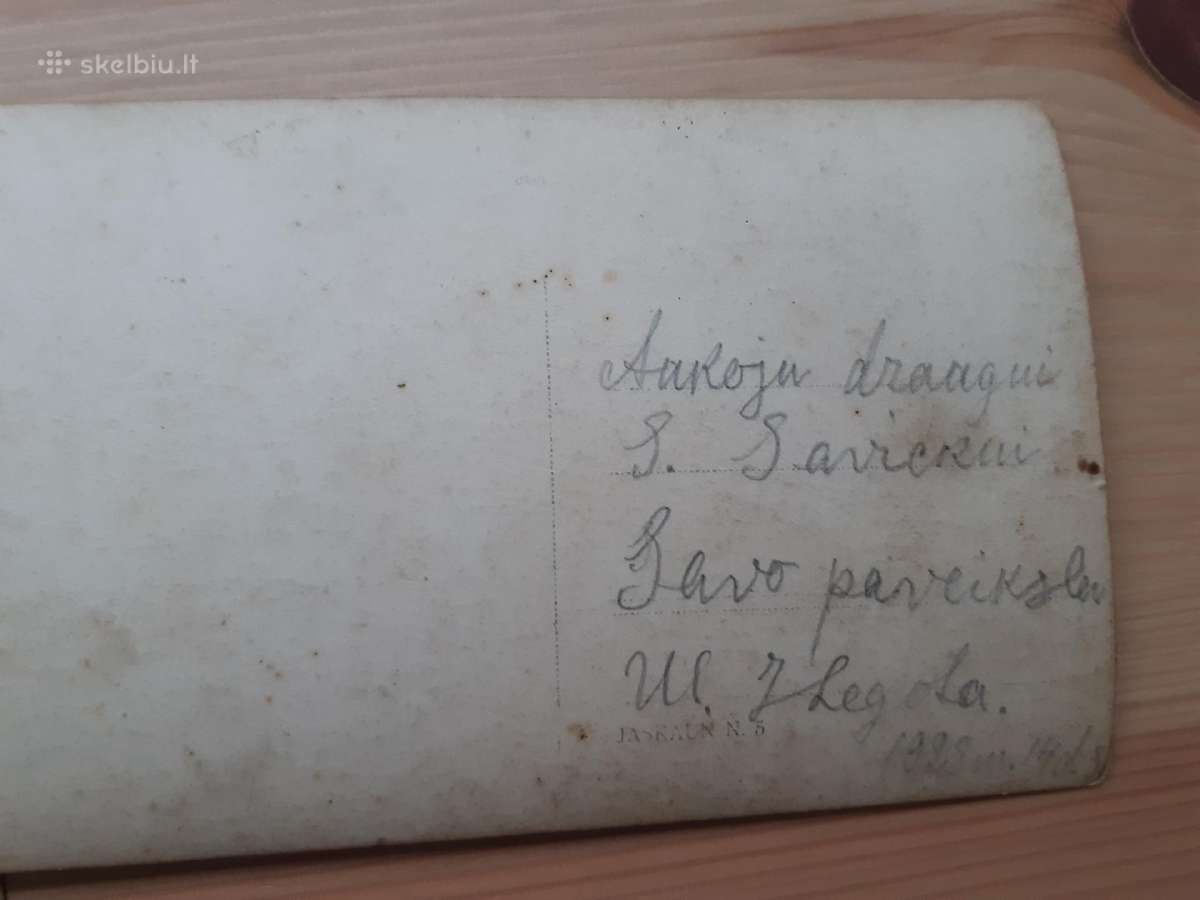 skelbiu.lt
Aukoju draugui
S. Savickui
Savo paveikslu
Vl. Žegota.
JASKAUN N. 5
1928 m.